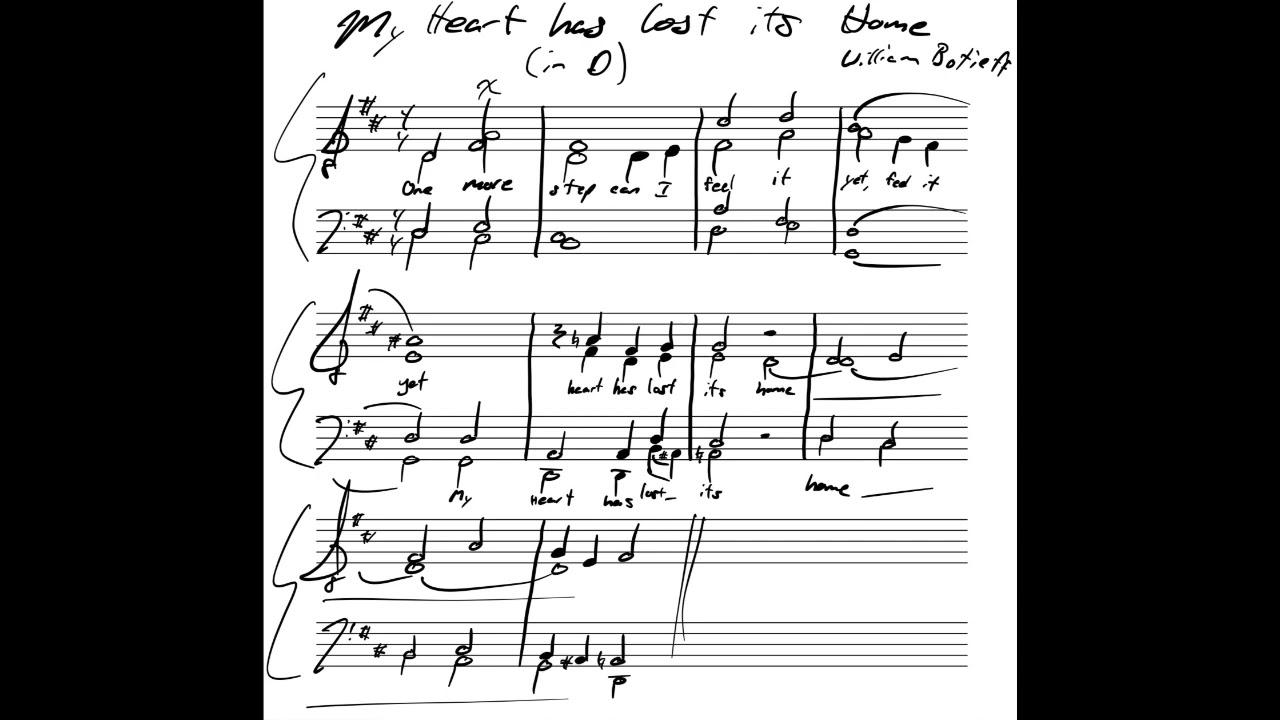 My Heart has Lost its Home
(in D)
William Botieff
One more step can I feel it yet, feel it
yet heart has lost its home
My Heart has lost_ its home